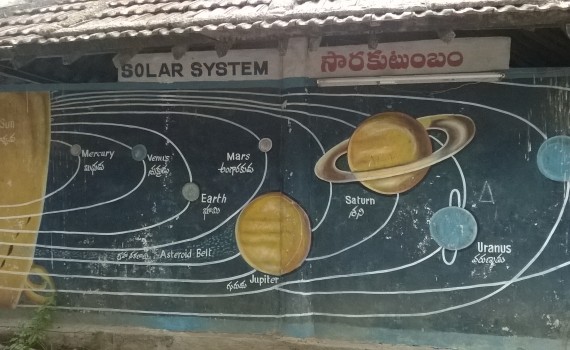 SOLAR SYSTEM
సౌరకుటుంబం
Sun
Mercury
బుధుడు
Venus
శుక్రుడు
Earth
భూమి
Mars
అంగారకుడు
Asteroid Belt
Jupiter
గురుడు
Saturn
శని
Uranus